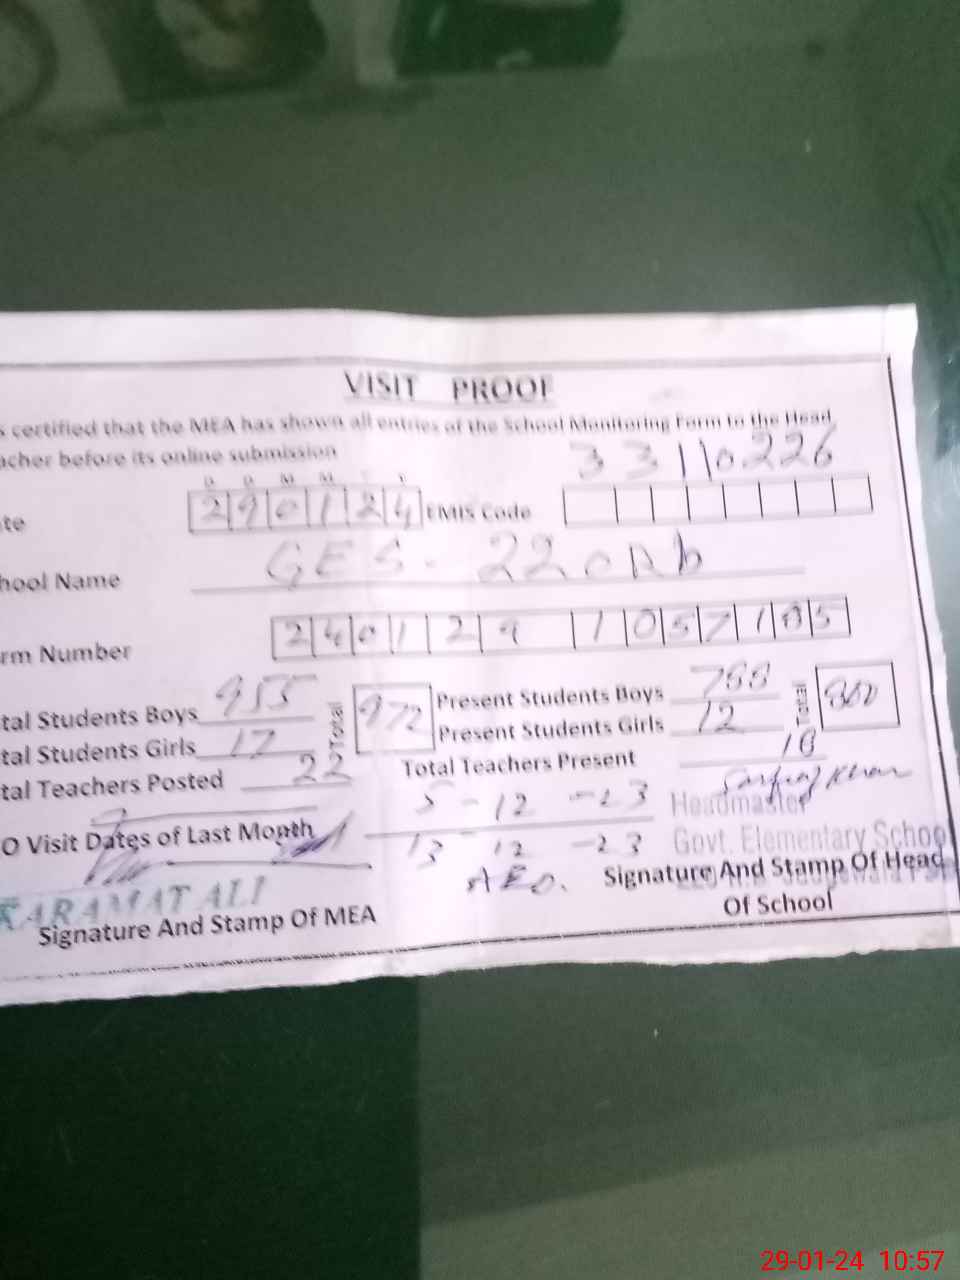 VISIT PROOF
s certified that the MEA has shown all entries of the School Monitoring Form to the Head
acher before its online submission
33110226
D D M M Y Y
te 290124 EMIS Code
hool Name GES - 22
rm Number 240129 1057185
tal Students Boys 955 Total 972 Present Students Boys 788 Total 800
tal Students Girls 17 Present Students Girls 12
tal Teachers Posted 22 Total Teachers Present 18
5-12-23 Headmaster
O Visit Dates of Last Month 13 12 -23 Govt. Elementary School
AEO. Signature And Stamp Of Head
KARAMAT ALI Of School
Signature And Stamp Of MEA
29-01-24 10:57